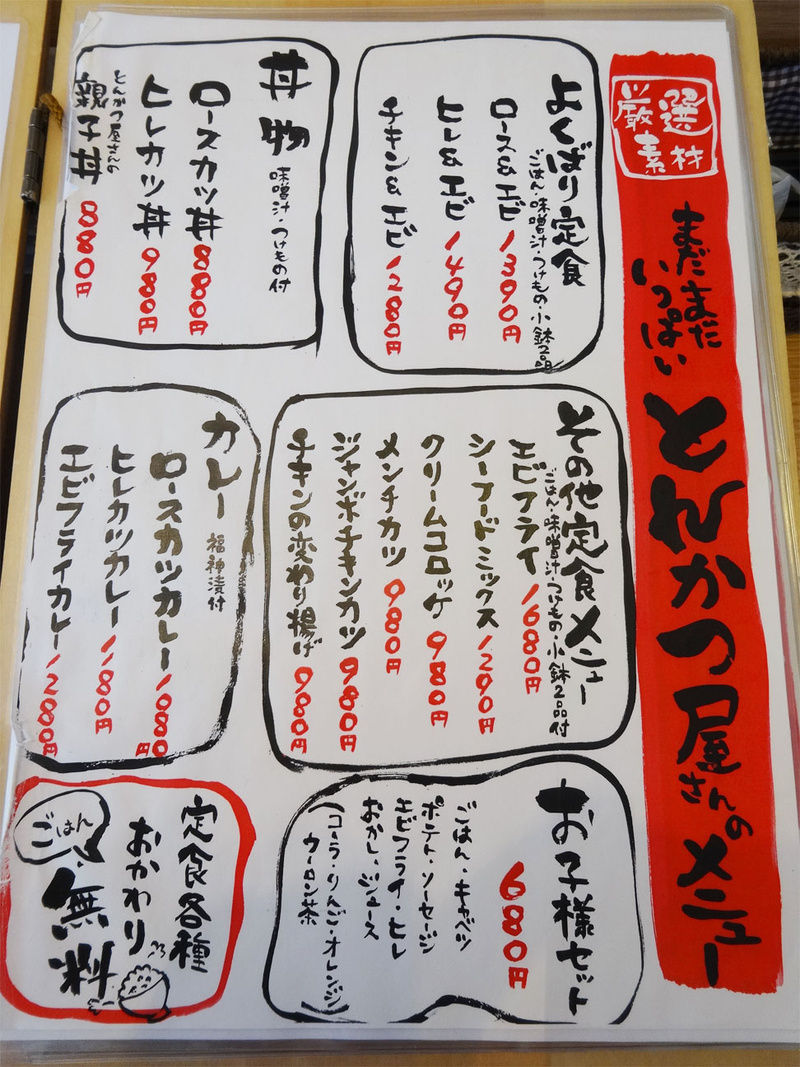 厳選素材
まだまだ
いっぱい
とんかつ屋さんの
メニュー
よくばり定食
ごはん・味噌汁・つけもの・小鉢2品
ロース&エビ 1390円
ヒレ&エビ 1490円
チキン&エビ 1280円
丼物
味噌汁・つけもの付
ロースカツ丼 880円
ヒレカツ丼 980円
とんかつ屋さんの
親子丼 880円
その他定食メニュー
ごはん・味噌汁・つけもの・小鉢2品付
エビフライ 1680円
シーフードミックス 1290円
クリームコロッケ 980円
メンチカツ 980円
ジャンボチキンカツ 980円
チキンの変わり揚げ 980円
カレー 福神漬付
ロースカツカレー 1080円
ヒレカツカレー 1180円
エビフライカレー 1280円
お子様セット
680円
ごはん・キャベツ
ポテト・ソーセージ
エビフライ・ヒレ
おかし・ジュース
(コーラ・りんご・オレンジ
ウーロン茶)
定食各種
おかわり
ごはん
無料